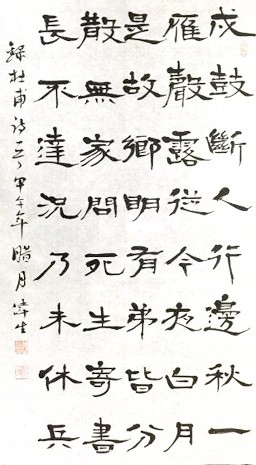 戍鼓斷人行邊秋一
雁聲露從今夜白月
是故鄉明有弟皆分
散無家問死生寄書
長不達況乃未休兵
錄杜甫詩 甲午年臘月 生